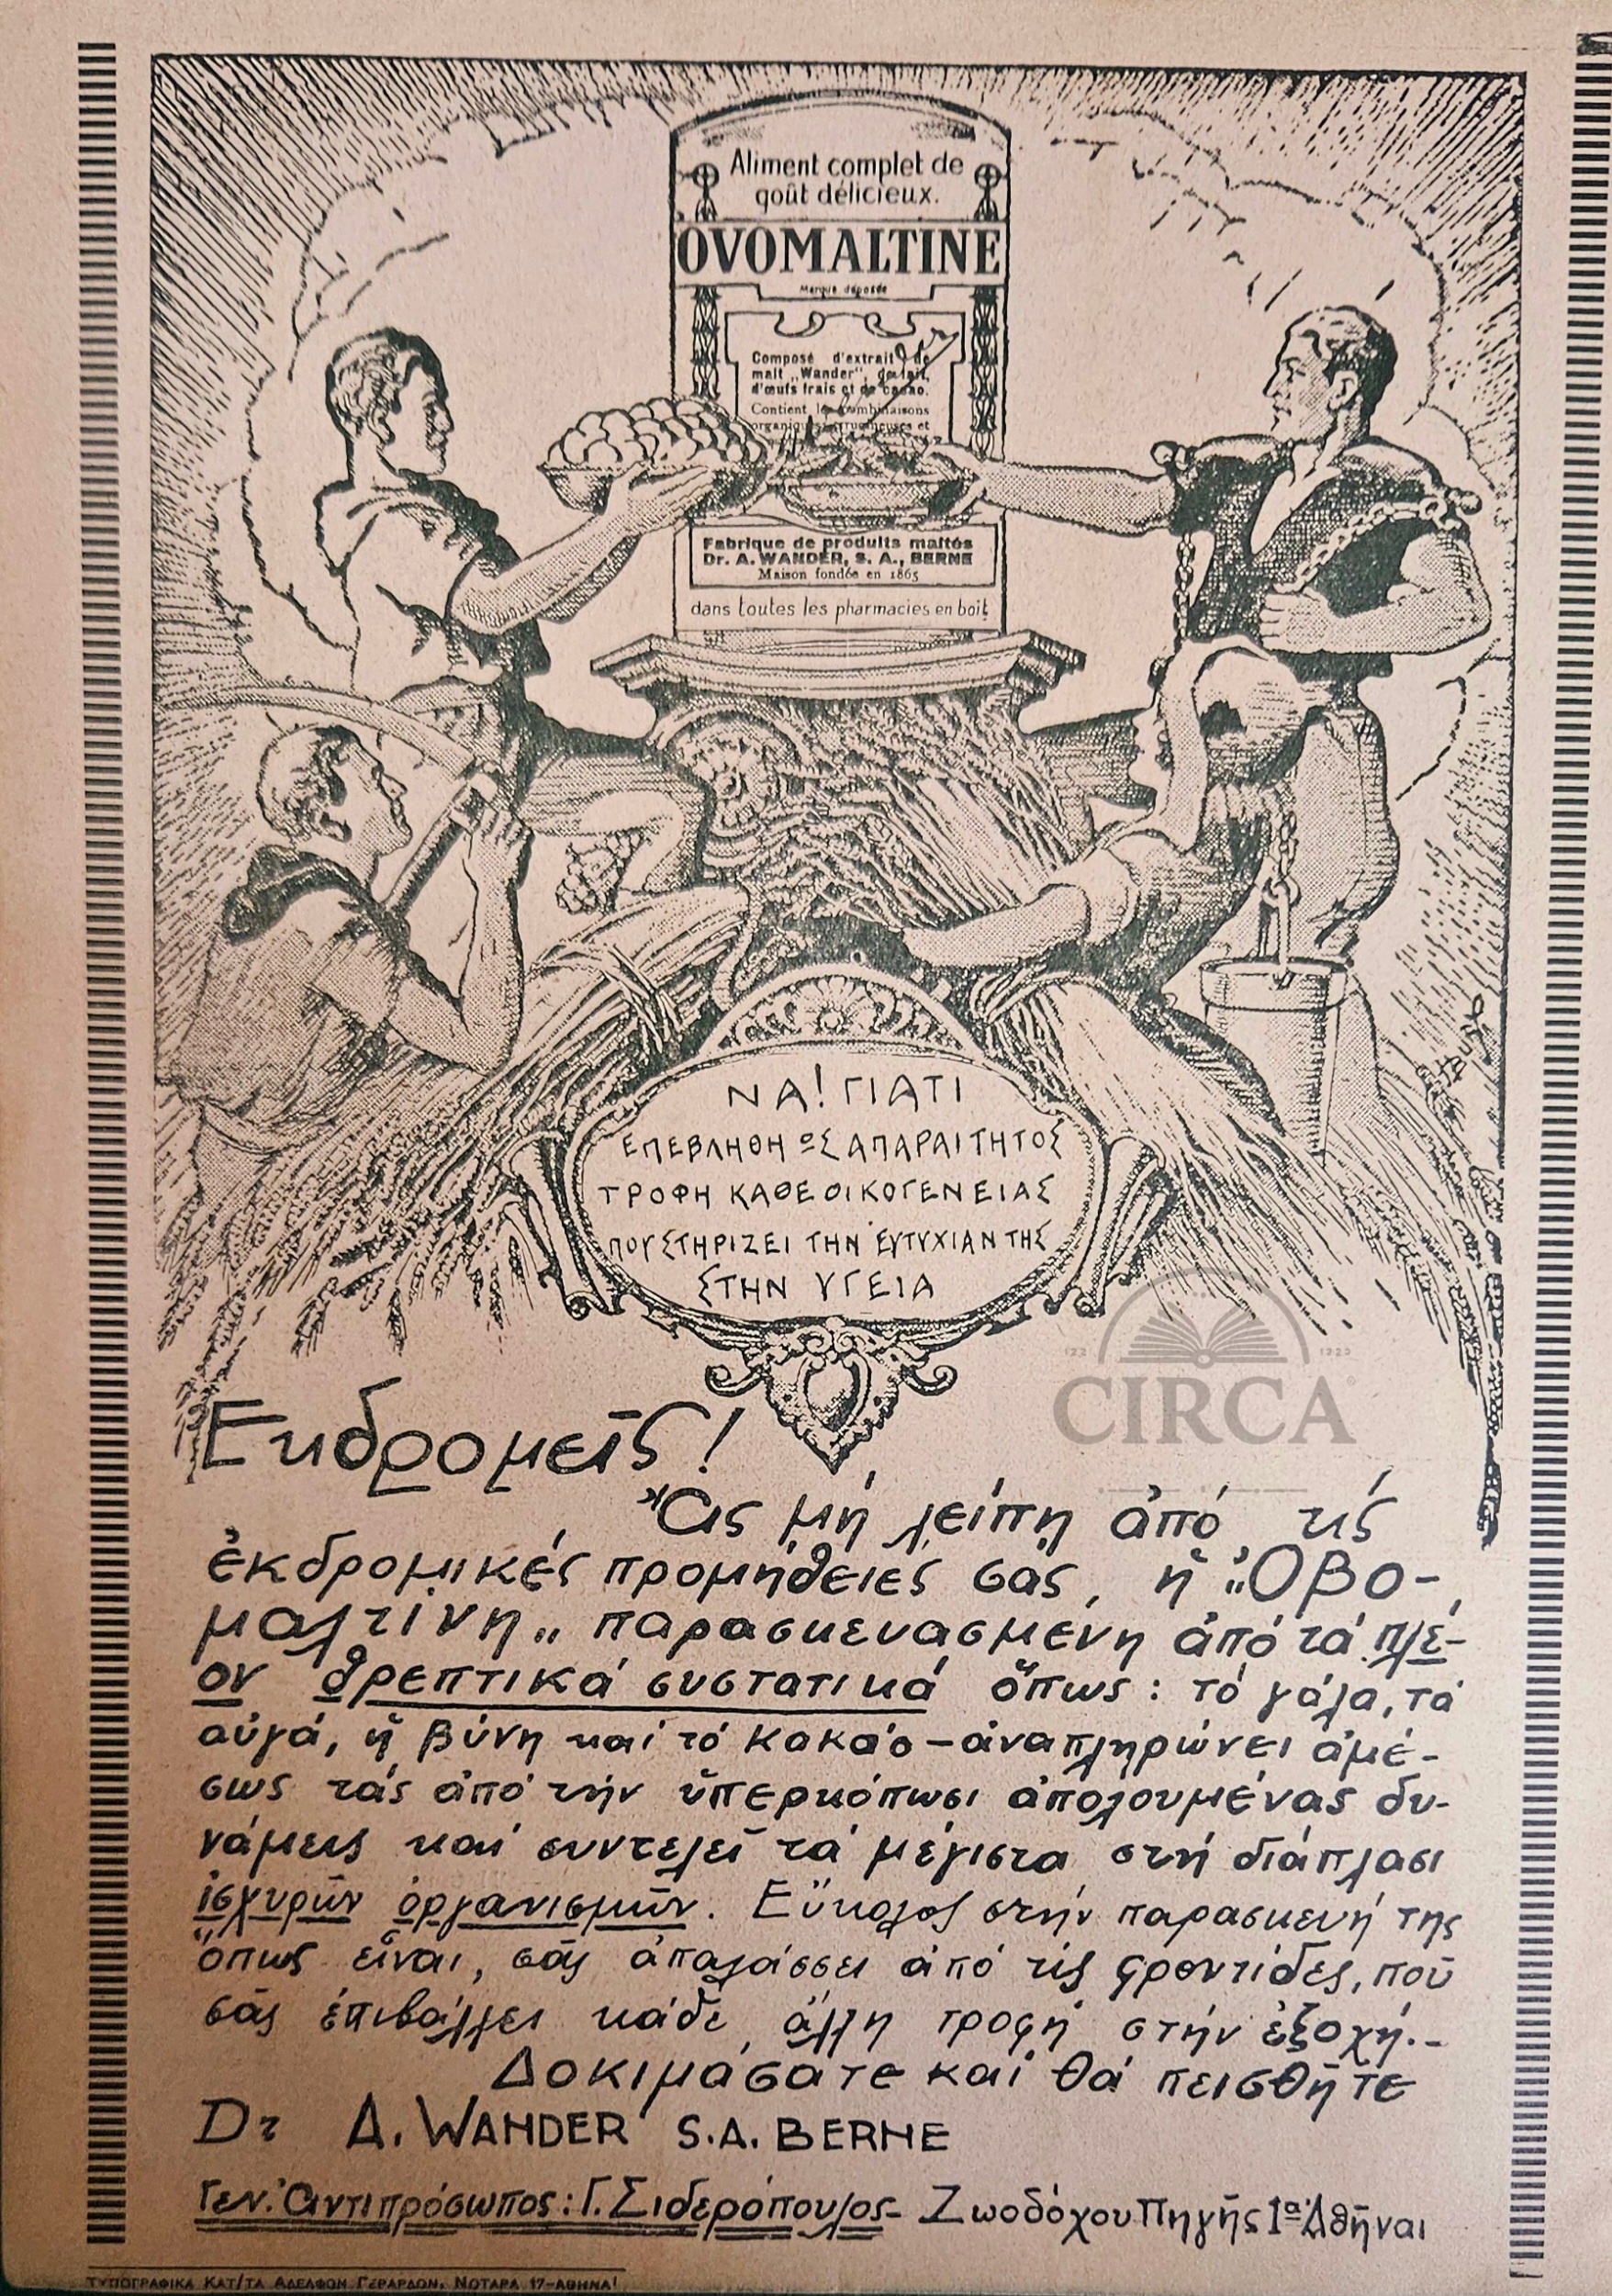 Aliment complet de
goût délicieux.
OVOMALTINE
Marque déposée
Composé d'extrait de
malt „Wander", de lait,
d'œufs frais et de cacao.
Contient les combinaisons
et
Fabrique de produits maltés
Dr. A. WANDER, S. A., BERNE
Maison fondée en 1865
dans toutes les pharmacies en boit
ΝΑ! ΓΙΑΤΙ
ΕΠΕΒΛΗΘΗ ΩΣ ΑΠΑΡΑΙΤΗΤΟΣ
ΤΡΟΦΗ ΚΑΘΕ ΟΙΚΟΓΕΝΕΙΑΣ
ΠΟΥ ΣΤΗΡΙΖΕΙ ΤΗΝ ΕΥΤΥΧΙΑΝ ΤΗΣ
ΣΤΗΝ ΥΓΕΙΑ
CIRCA
Εκδρομεῖς!
Ἄς μή λείπη ἀπό τίς
ἐκδρομικές προμήθειές σας, ἡ „Οβο-
μαλτίνη„ παρασκευασμένη ἀπό τά πλέ-
ον θρεπτικά συστατικά ὅπως: τό γάλα, τά
αὐγά, ἡ βύνη καί τό κακάο - ἀναπληρώνει ἀμέ-
σως τάς ἀπό τήν ὑπερκόπωσι ἀπολουμένας δυ-
νάμεις καί συντελεῖ τά μέγιστα στή διάπλασι
ἰσχυρῶν ὀργανισμῶν. Εὔκολος στήν παρασκευή της
ὅπως εἶναι, σᾶς ἀπαλάσσει ἀπό τίς φροντίδες, ποῦ
σᾶς ἐπιβάλλει κάθε ἄλλη τροφή στήν ἐξοχή.-
Δοκιμάσατε καί θά πεισθῆτε
Dr Α. WANDER S.A. BERNE
Γεν. Ἀντιπρόσωπος: Γ. Σιδερόπουλος - Ζωοδόχου Πηγῆς 1α Ἀθῆναι
ΤΥΠΟΓΡΑΦΙΚΑ ΚΑΤ/ΤΑ ΑΔΕΛΦΩΝ ΓΕΡΑΡΔΩΝ, ΝΟΤΑΡΑ 17-ΑΘΗΝΑΙ